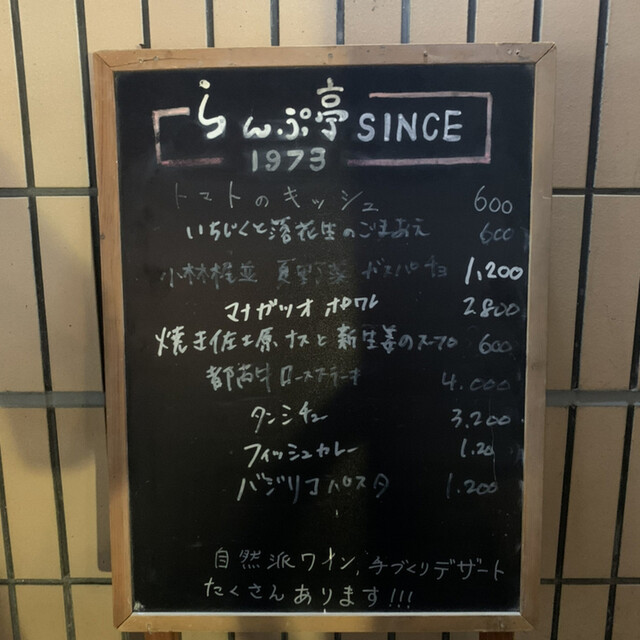 らんぷ亭 SINCE
1973
トマトのキッシュ 600
いちじくと落花生のごまあえ 600
小林椎茸 夏野菜 ガスパチョ 1,200
マナガツオ ポワレ 2800
焼き佐土原ナスと新生姜のスープ 600
都萬牛 ロースステーキ 4.000
タンシチュー 3,200
フィッシュカレー 1.20
バジリコパスタ 1.200
自然派ワイン、手づくりデザート
たくさんあります!!!